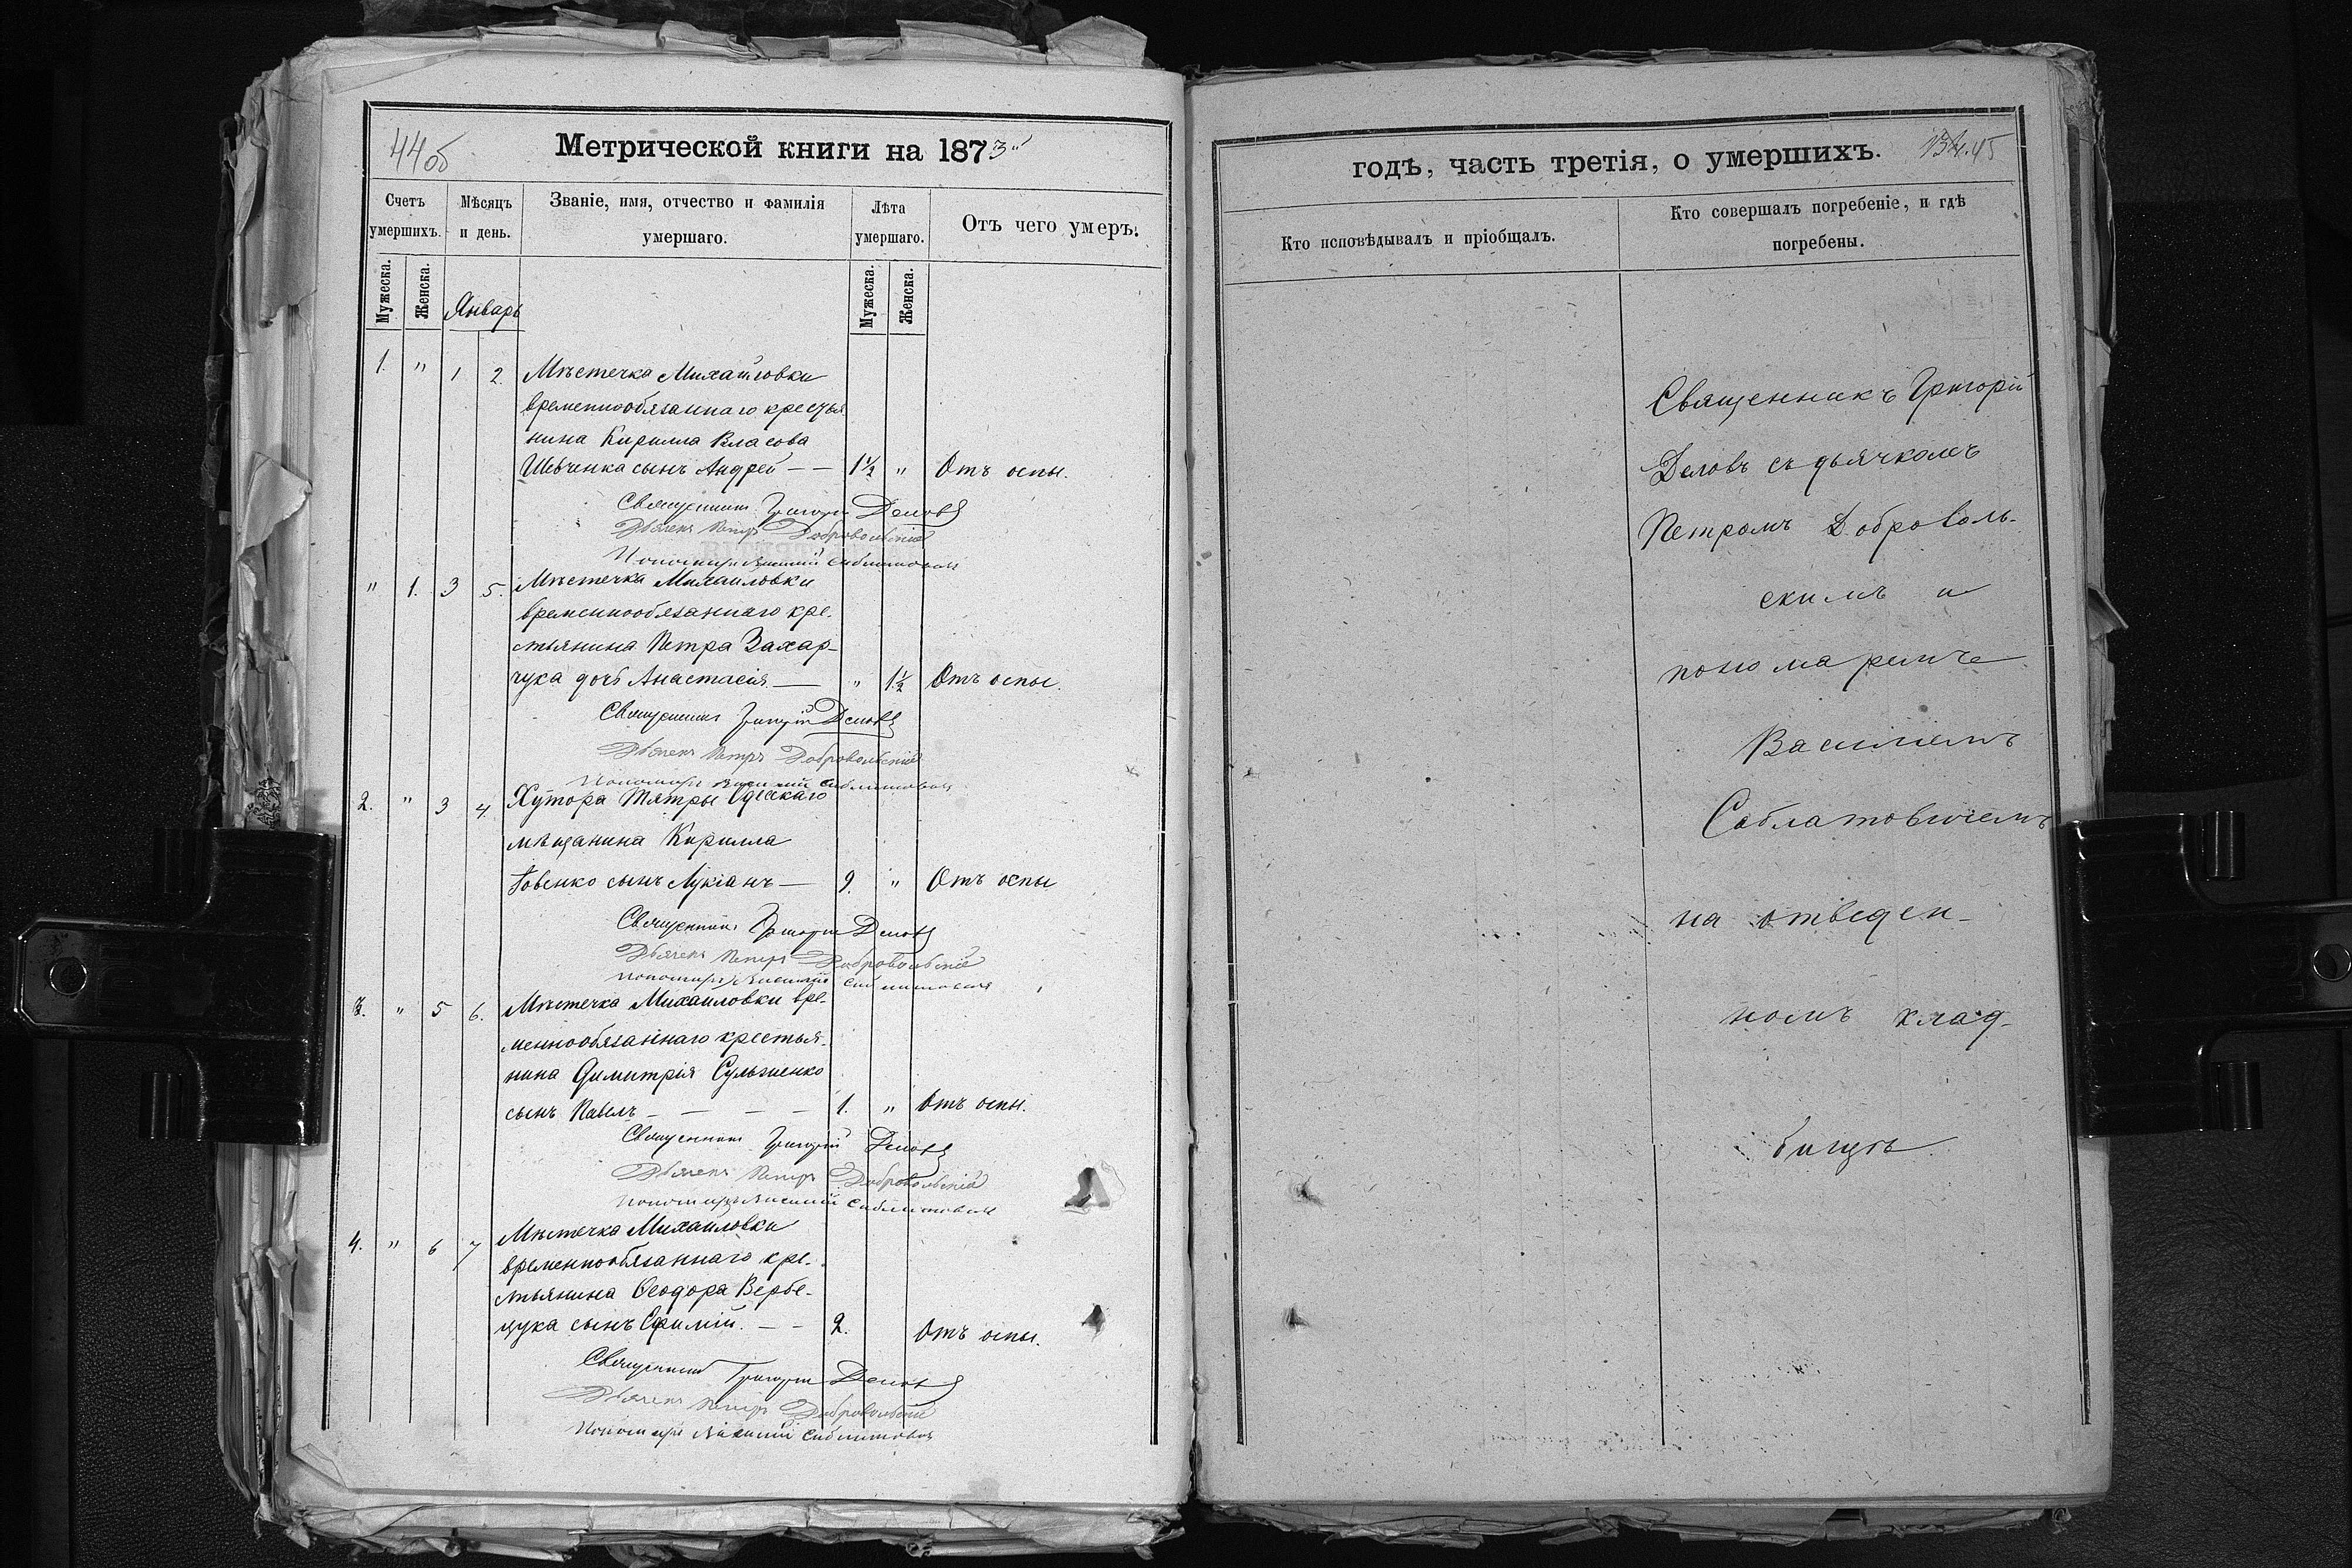 44об
Метрической книги на 1873й
Счетъ умершихъ.
Мѣсяцъ и день.
Званіе, имя, отчество и фамилія умершаго.
Лѣта умершаго.
Отъ чего умеръ.
Мужеска.
Женска.
Январь
Мужеска.
Женска.
1. " 1 2. Мѣстечка Михайловки
временнообязаннаго крестья
нина Кирилла Власова
Шевченка сынъ Андрей — — 1½ " Отъ оспы.
Священникъ Григорій Деловъ
Дьячекъ Петръ Добровольскій
Пономарь Василій
" 1. 3 5. Мѣстечка Михайловки
временнообязаннаго кре-
стьянина Петра Захар-
чука дочь Анастасія — " 1½ Отъ оспы.
Священникъ Григорій Деловъ
Дьячекъ Петръ Добровольскій
Пономарь Василій
2. " 3 4. Хутора Тятры Одесскаго
мѣщанина Кирилла
сынъ Лукіанъ — 9. " Отъ оспы
Священникъ Григорій Деловъ
Дьячекъ Петръ Добровольскій
Пономарь Василій
3. " 5 6. Мѣстечка Михаиловки вре-
меннообязаннаго крестья-
нина Димитрія
сынъ Павелъ — — — — 1. " Отъ оспы.
Священникъ Григорій Деловъ
Дьячекъ Петръ Добровольскій
Пономарь Василій
4. " 6 7 Мѣстечка Михайловки
временнообязаннаго кре-
стьянина Ѳеодора Вербе-
цука сынъ Ефимій. — — 2. Отъ оспы.
Священникъ Григорій Деловъ
Дьячекъ Петръ Добровольскій
Пономарь Василій
годѣ, часть третія, о умершихъ.
45
Кто исповѣдывалъ и пріобщалъ.
Кто совершалъ погребеніе, и гдѣ погребены.
Священникъ Григорій
Деловъ съ дьячкомъ
Петромъ Доброволь-
скимъ и
пономаремъ
Василіемъ
на отведен-
номъ клад-
бищѣ.